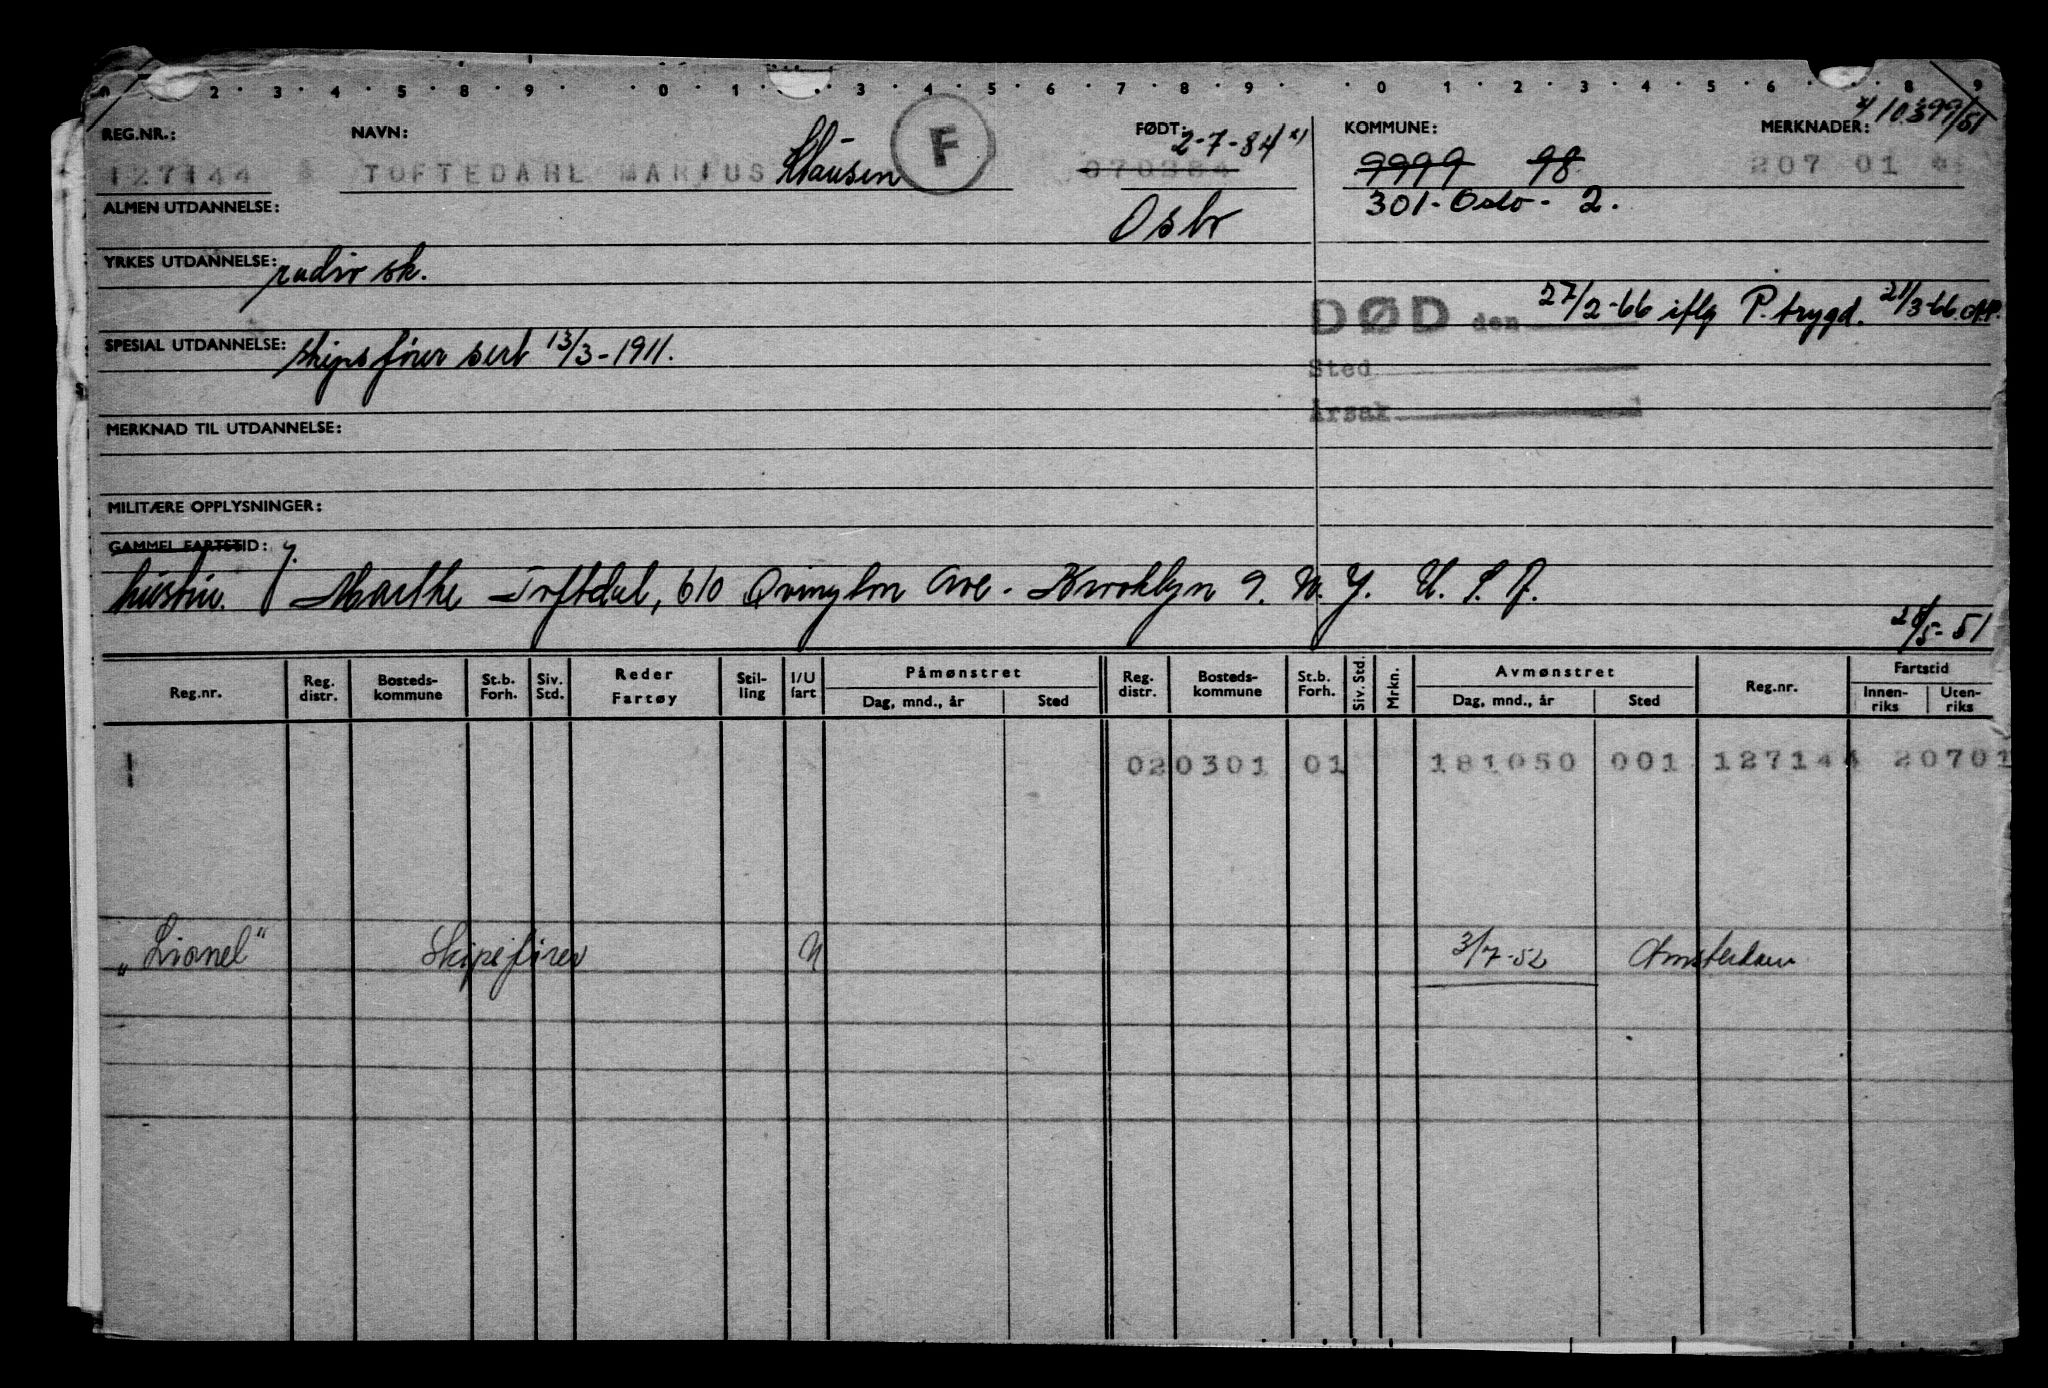 0 · 2 · 3 · 4 · 5 · 8 · 9 · · 0 · 1 · · 3 · 4 · 5 · 6 · 7 · 8 · 9 · · 0 · 1 · 2 · 3 · 4 · 5 · 6 · · 8 · 9
x/ 10.399/51
REG.NR.: NAVN: F FØDT: 2-7-84 x/ KOMMUNE: MERKNADER:
127144 TOFTEDAHL MARIUS Klausen 070284 9999 98 207 01
ALMEN UTDANNELSE: Oslo 301-Oslo-2.
YRKES UTDANNELSE: radio sk.
DØD den 27/2-66 iflg P. trygd. 21/3-66.
SPESIAL UTDANNELSE: skipsfører sert 13/3-1911.
Sted
Årsak
MERKNAD TIL UTDANNELSE:
MILITÆRE OPPLYSNINGER:
GAMMEL FARTSTID:
hustru. Marthe Toftdal, 610 Ovington Ave. Brooklyn 9. N.Y. U.S.A.
28/5-51
Reg.nr. Reg. distr. Bosteds-kommune St.b. Forh. Siv. Std. Reder Fartøy Stil-ling I/U fart Påmønstret Dag, mnd., år Sted Reg. distr. Bosteds-kommune St.b. Forh. Siv. Std. Mrkn. Avmønstret Dag, mnd., år Sted Reg.nr. Fartstid Innen-riks Uten-riks
020301 01 181050 001 127144 20701
„Lionel" Skipsfører U 3/7-52 Amsterdam